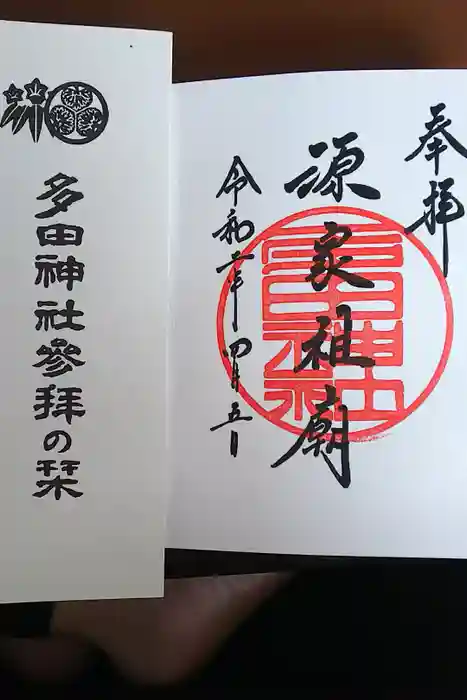 奉拝
源家祖廟
令和二年四月五日
多田神社
多田神社参拝の栞